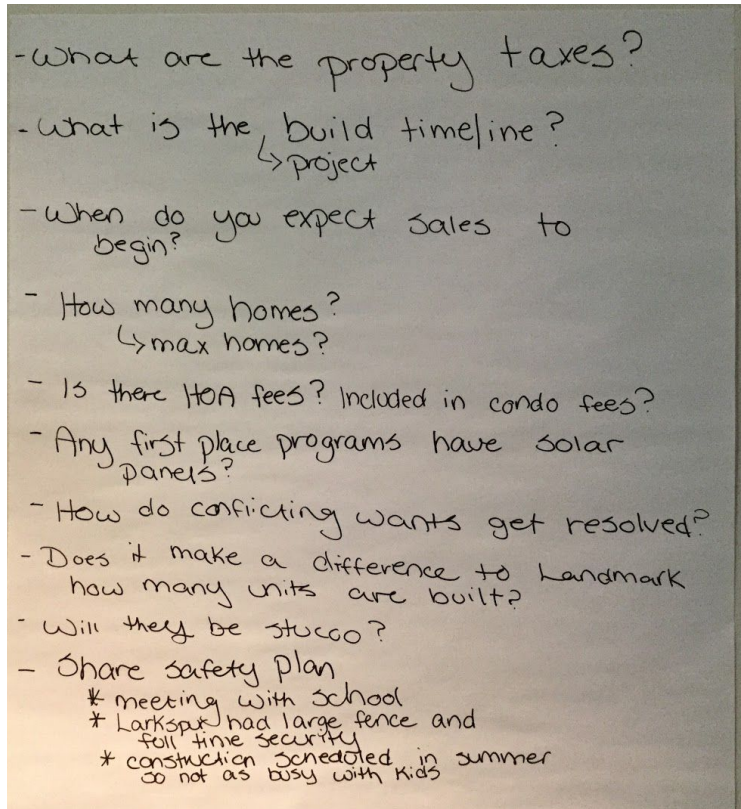 - What are the property taxes?
- What is the build timeline?
↳ project
- When do you expect sales to
begin?
- How many homes?
↳ max homes?
- Is there HOA fees? Included in condo fees?
- Any first place programs have solar
panels?
- How do conficting wants get resolved?
- Does it make a difference to Landmark
how many units are built?
- Will they be stucco?
- Share safety plan
* meeting with school
* Larkspur had large fence and
full time security
* construction scheduled in summer
so not as busy with kids